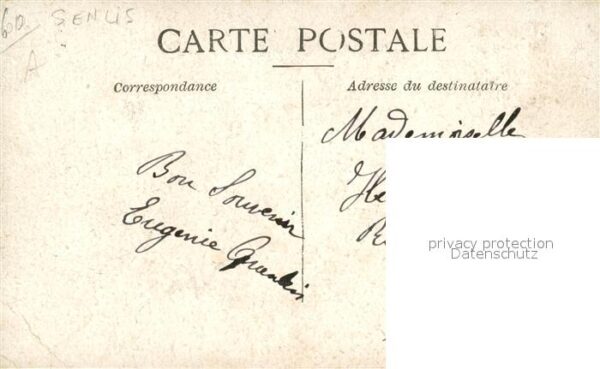 60 SENLIS
A
CARTE POSTALE
Correspondance
Adresse du destinataire
Bon Souvenir
Eugenie
Mademoiselle
He
R
privacy protection
Datenschutz